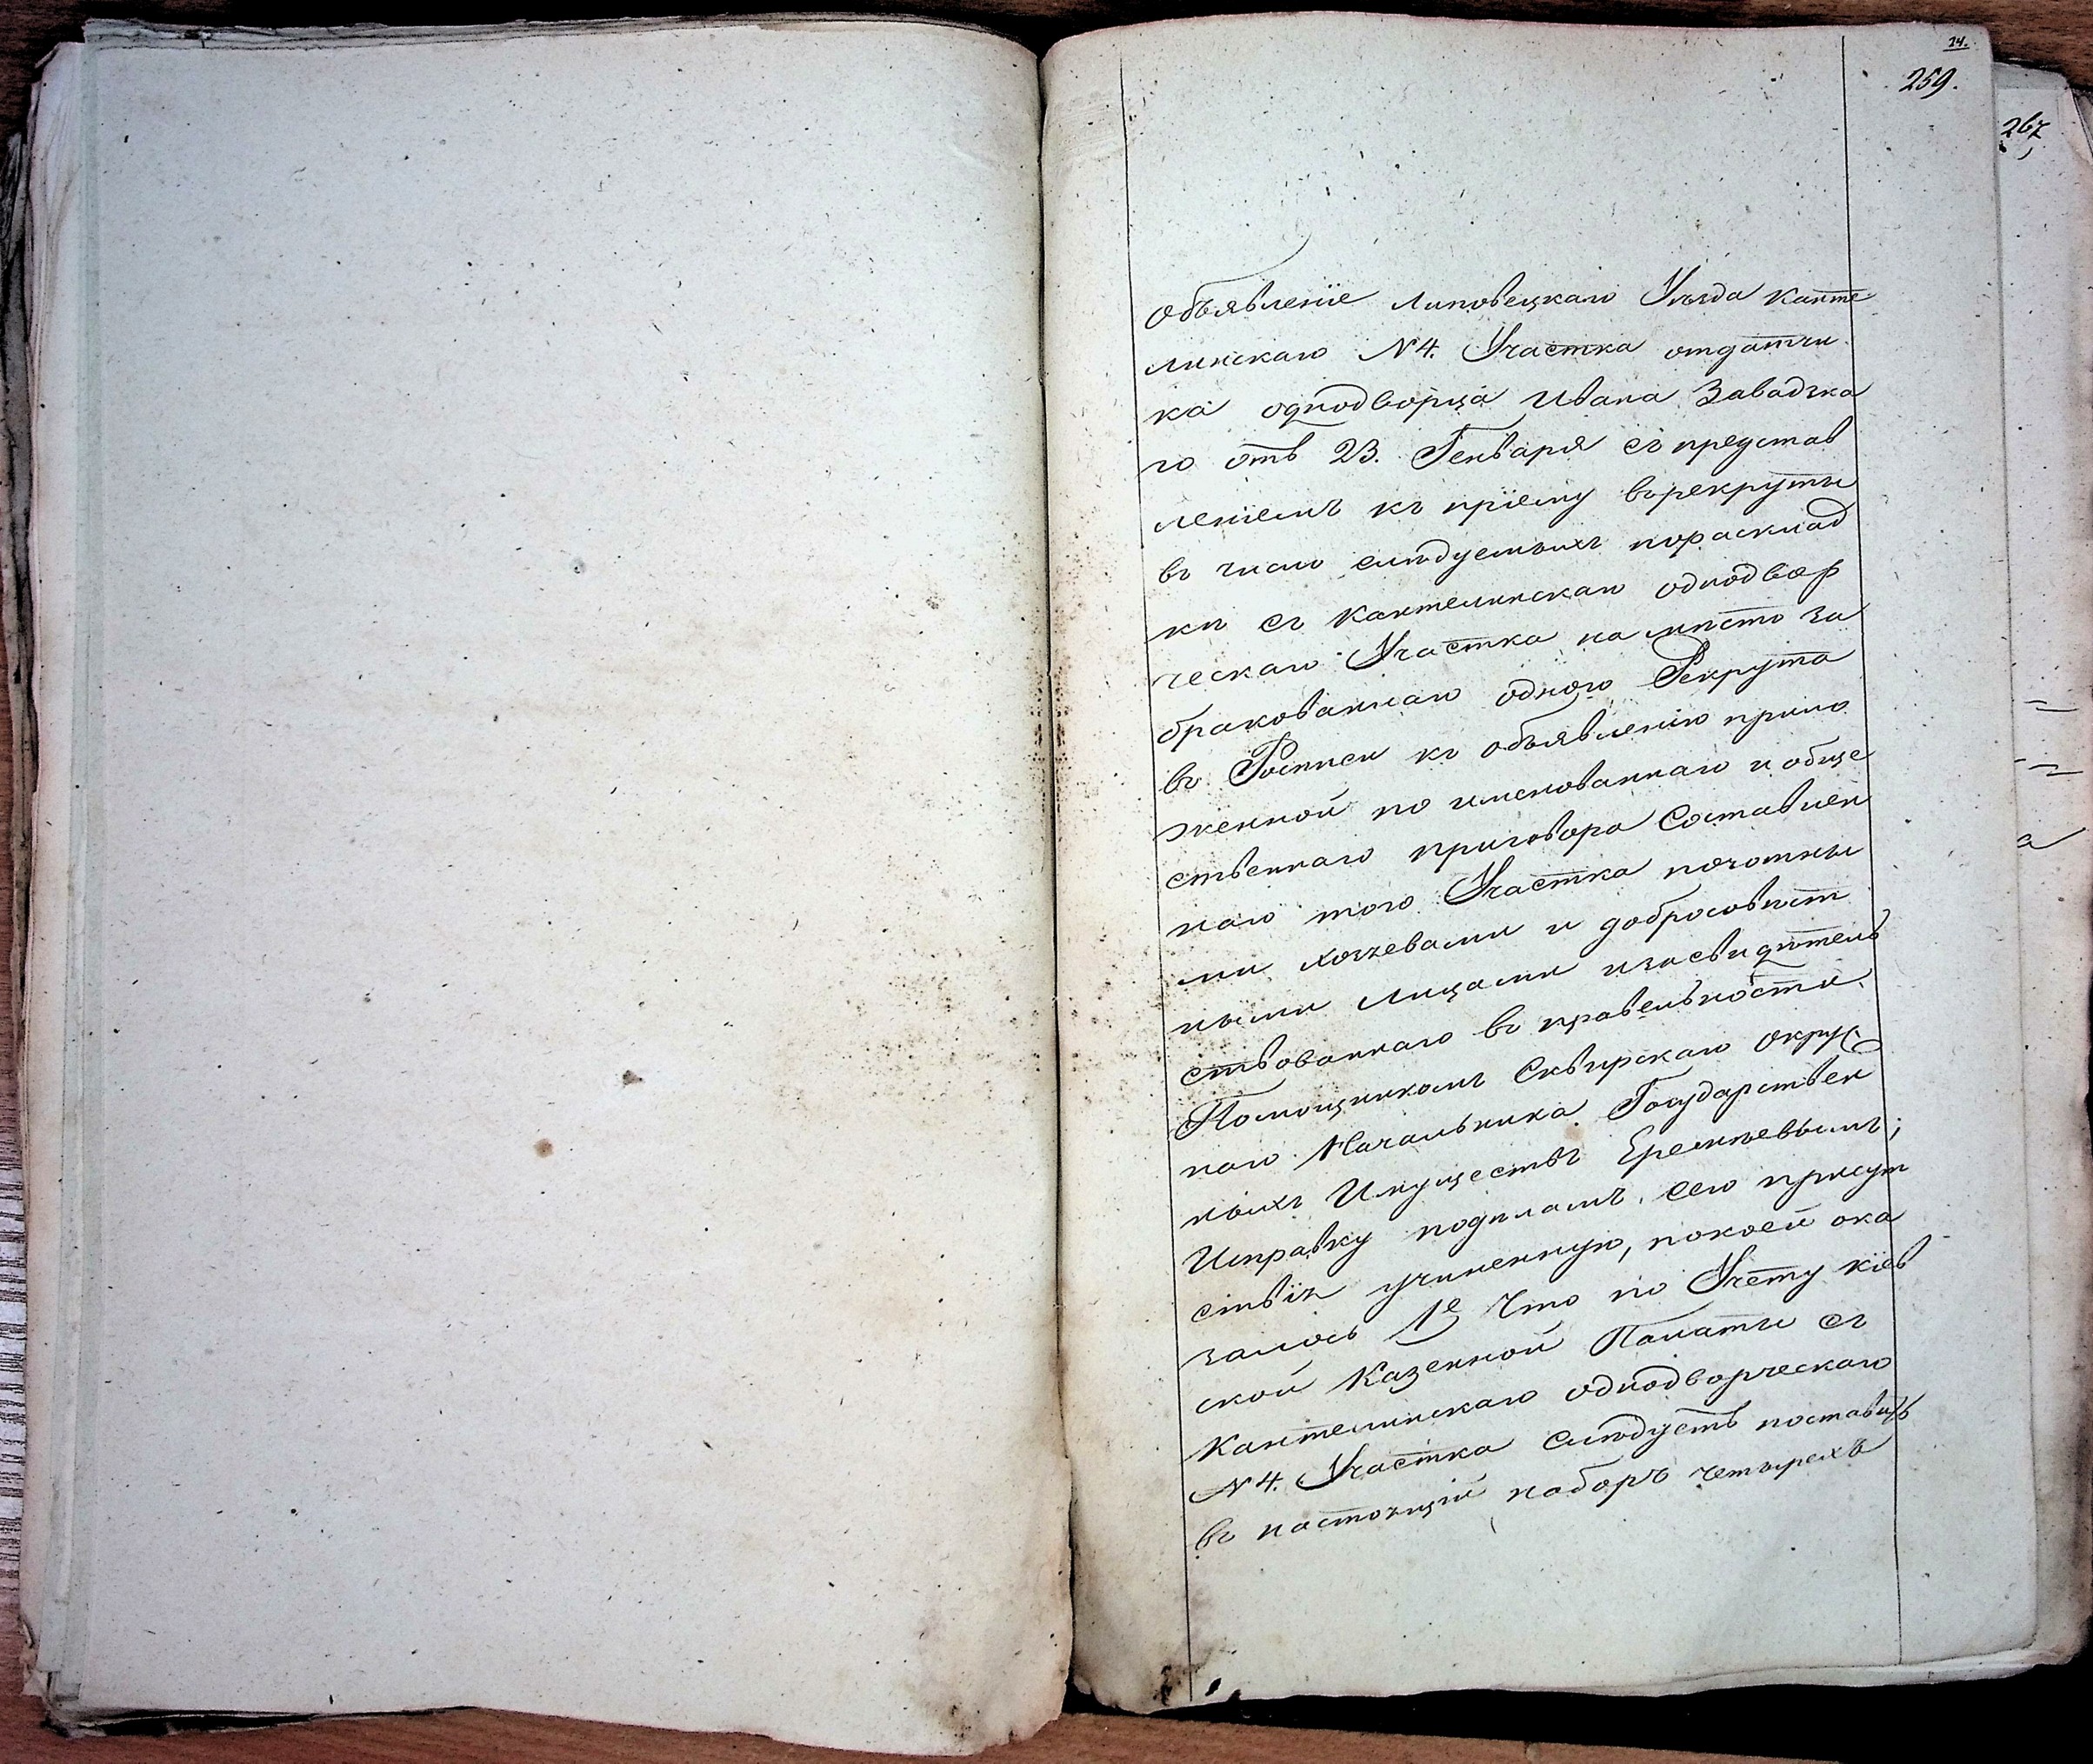 24.
259.
267
Объявленіе Липовецкаго УѣздаКанте
линскаго N 4. Участка отдатчи
ка однодворца Ивана Завадзка
го отъ 23. Генваря съ представ
леніемъ къ пріему врекруты
въ число слѣдуемыхъ порасклад
кѣ съ Кантелинскаго однодвор
ческаго Участка на мѣсто за
бракованнаго одного Рекрута
въ Росписи къ объявленію прило
женной по именованнаго и обще
ственнаго приговора Составлен
наго того Участка почотны
ми хозяевами и добросовѣст
ными лицами изасвидѣтель
ствованнаго въ правельности
Помощникомъ Сквирскаго Окруж
наго Начальника Государствен
ныхъ Имуществъ Еремѣевымъ;
Исправку подѣламъ сего присут
ствія учиненную, покоей ока
залось 1е Что по Учету Кіев
ской Казенной Палаты съ
Кантелинскаго однодворческаго
N 4. Участка Слѣдуетъ поставить
въ настоящій наборъ четырехъ
а